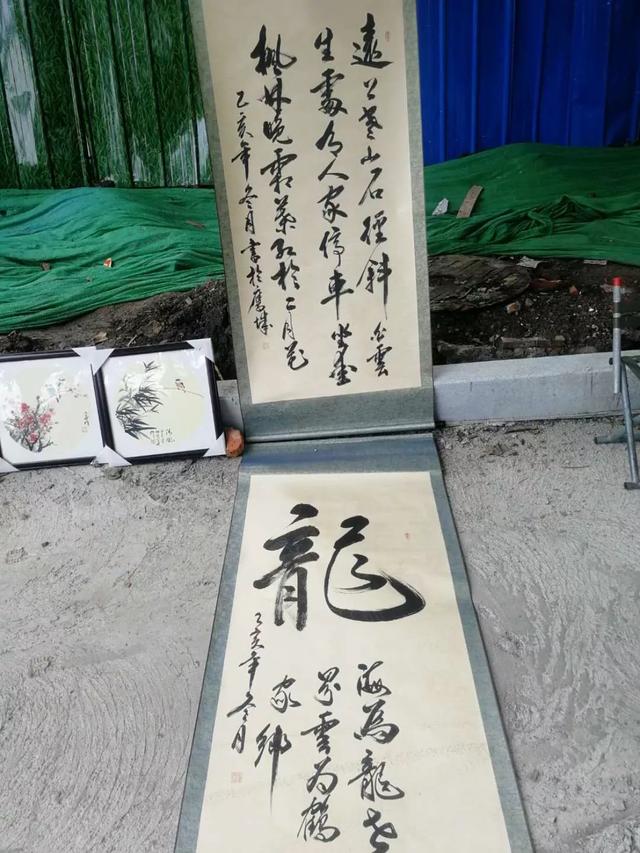 遠上寒山石徑斜白雲
生處有人家停車坐愛
楓林晚霜葉紅於二月花
乙亥年冬月書於城
龍
海為龍世
界雲為鶴
家鄉
乙亥年冬月
清風